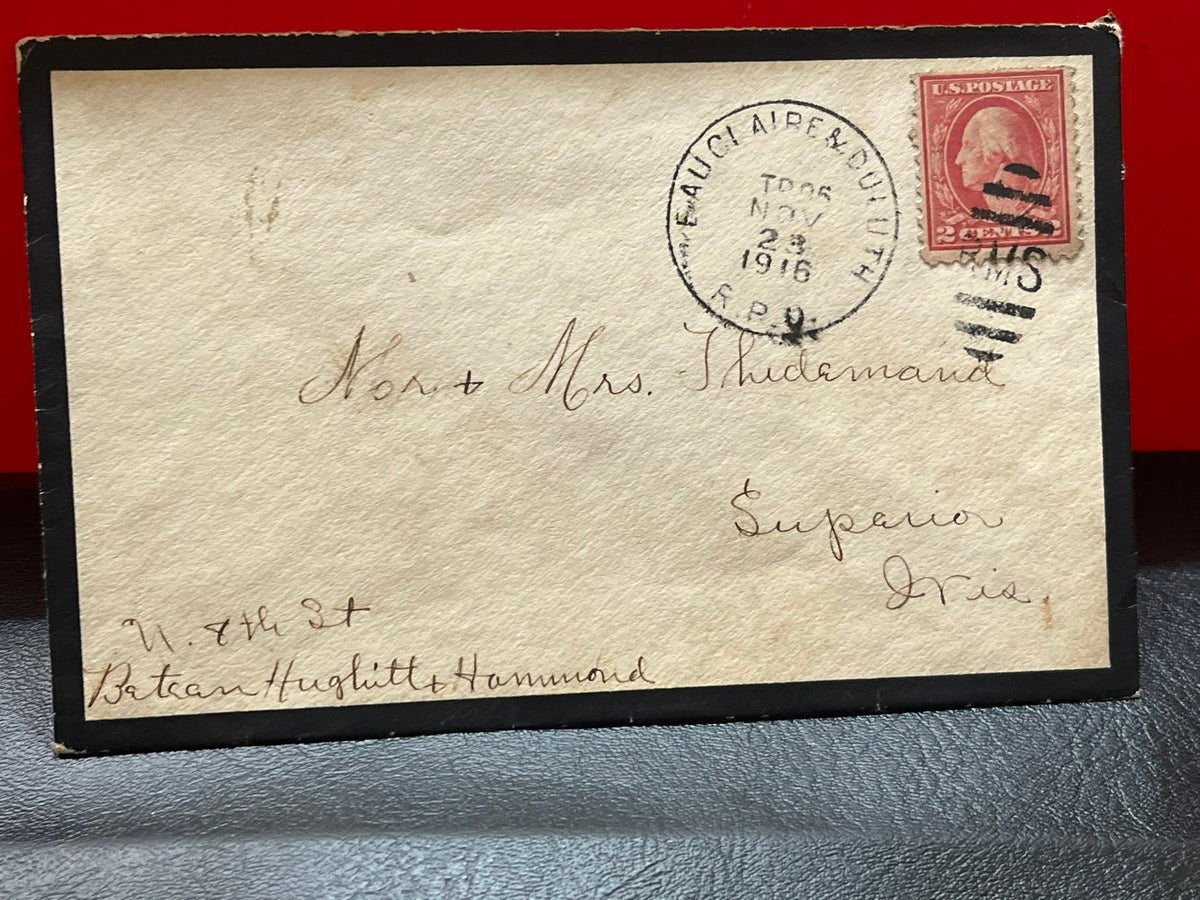 U.S. POSTAGE
2 CENTS 2
EAU CLAIRE & DULUTH
NOV
23
1916
R.P.O.
RMS
Mr + Mrs. Thedemand
Superior
Wis.
N. 8th St
Betean Hughitt + Hammond